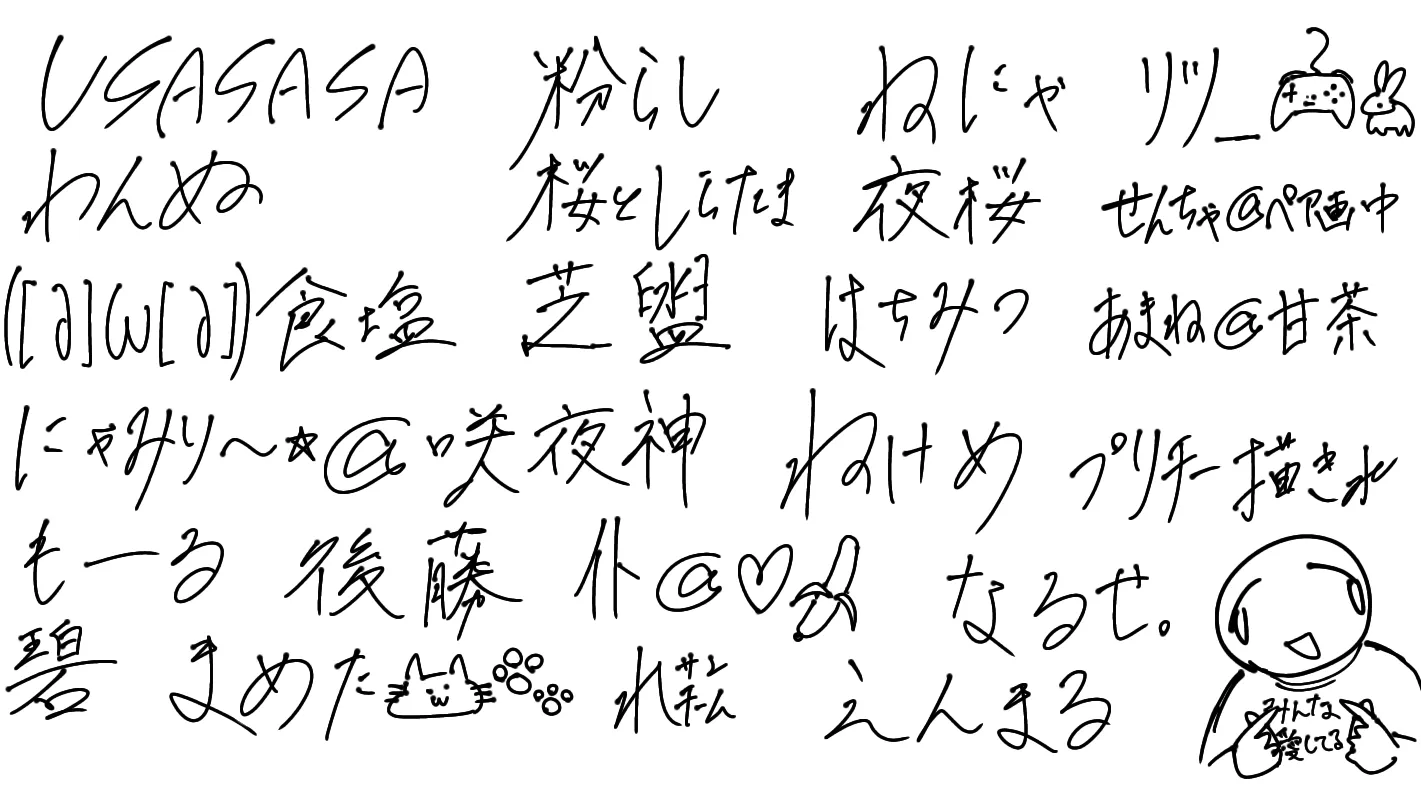 USASASA 粉らし ねにゃ リツ_
わんぬ 桜としらたま 夜桜 せんちゃ@ペア画中
([∂]ω[∂])食塩 芝盟 はちみつ あまね@甘茶
にゃみり〜☆@咲夜神 ねけめ プリチー描き水
もーる 後藤 仆@♡ なるせ。
碧 まめた れ サンチーム えんまる
みんな
愛してる